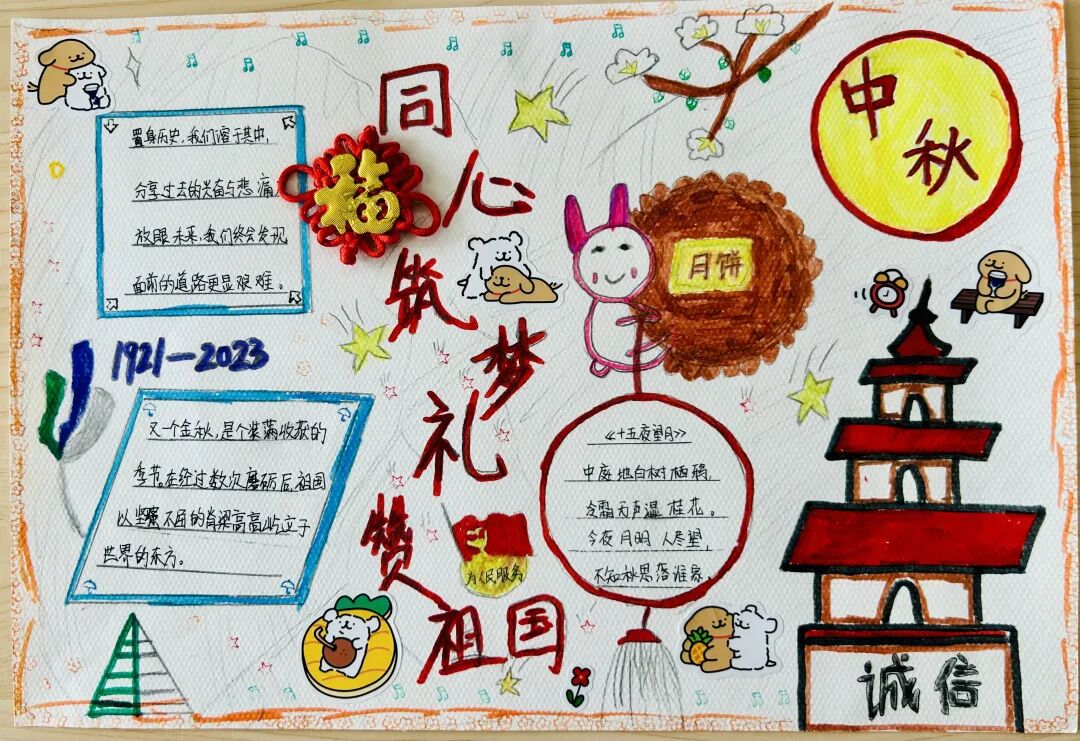 置身历史,我们溶于其中,
分享过去的兴奋与悲痛,
放眼未来,我们终会发现
面前的道路更显艰难。
福
同心
筑梦
礼
赞
祖国
中秋
月饼
1921—2023
又一个金秋,是个装满收获的
季节,在经过数次磨砺后,祖国
以坚强不屈的脊梁高高屹立于
世界的东方。
《十五夜望月》
中庭地白树栖鸦,
冷露无声湿桂花。
今夜月明人尽望,
不知秋思落谁家。
为人民服务
诚信